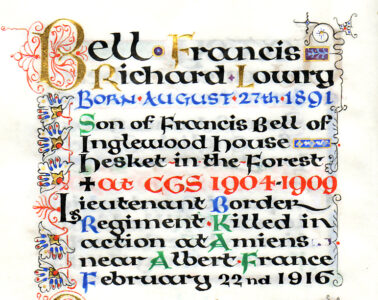 Bell · Francis
Richard · Lowry
Born · August · 27th · 1891
Son of Francis Bell of
Inglewood House
Hesket-in-the-Forest
+ at CGS 1904-1909
Lieutenant Border
Regiment · Killed in
action at Amiens
near Albert · France
February 22nd 1916
B
R
K
A
F